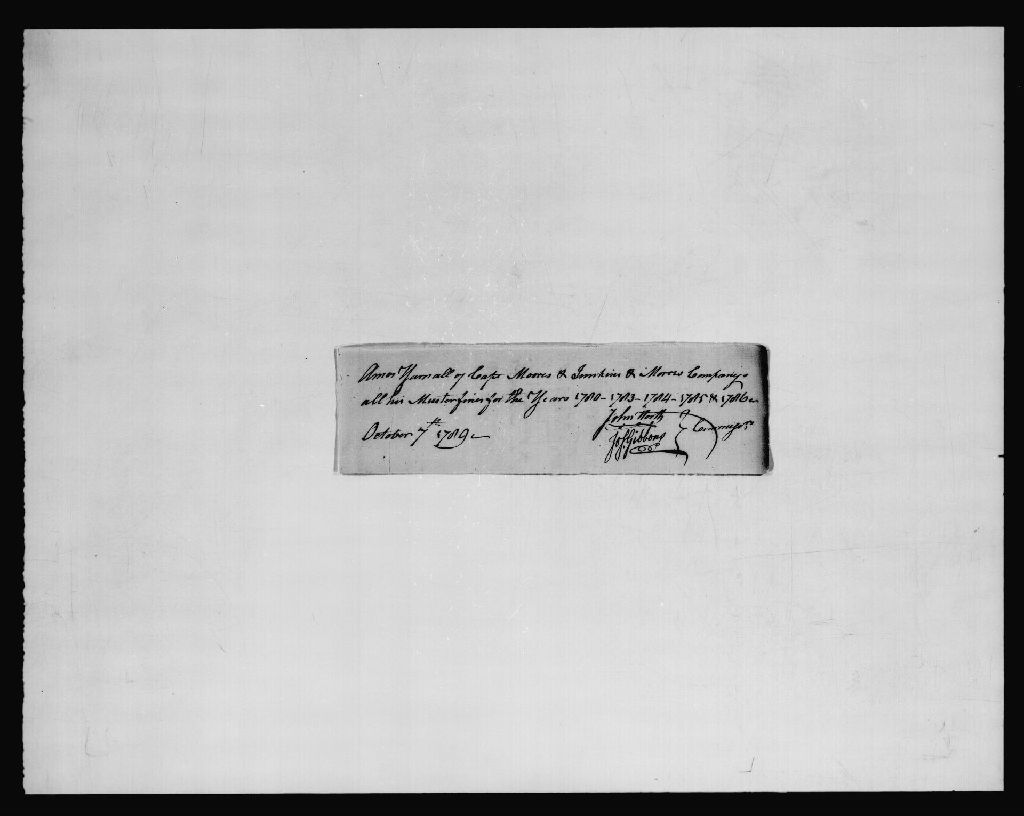 Amos Yarnall of Capt Moores & & Moores Company
all his Muster fines for the Years 1780 - 1783 - 1784 - 1785 & 1786
John North
October 7th 1789 Jos. Gibbons Commyrs